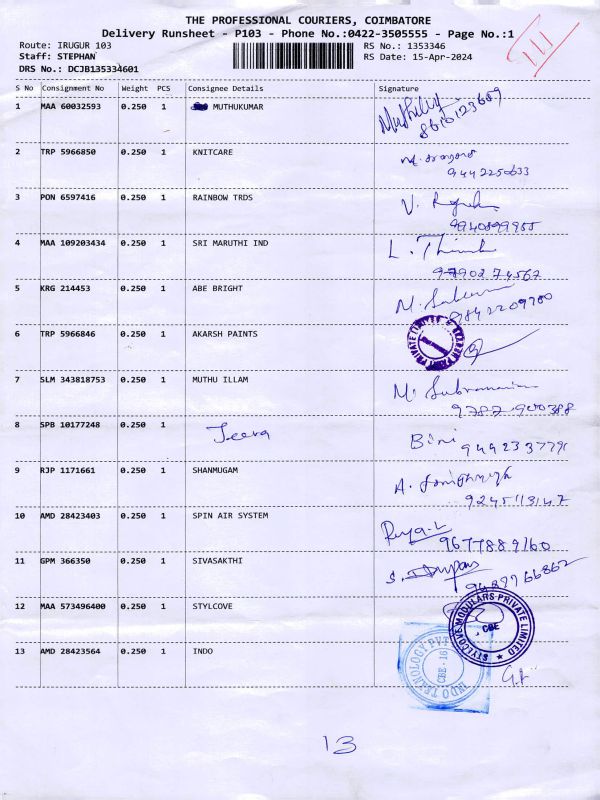 THE PROFESSIONAL COURIERS, COIMBATORE
Delivery Runsheet - P103 - Phone No.:0422-3505555 - Page No.:1
Route: IRUGUR 103 RS No.: 1353346
Staff: STEPHAN RS Date: 15-Apr-2024
DRS No.: DCJB135334601
S No Consignment No Weight PCS Consignee Details Signature
1 MAA 60032593 0.250 1 MUTHUKUMAR
8610123689
2 TRP 5966850 0.250 1 KNITCARE
9442250633
3 PON 6597416 0.250 1 RAINBOW TRDS V.
9940899955
4 MAA 109203434 0.250 1 SRI MARUTHI IND L.
9790274567
5 KRG 214453 0.250 1 ABE BRIGHT M.
9842209700
6 TRP 5966846 0.250 1 AKARSH PAINTS
7 SLM 343818753 0.250 1 MUTHU ILLAM M. Subramani
9787900388
8 SPB 10177248 0.250 1 Jeeva Bini 9492337791
9 RJP 1171661 0.250 1 SHANMUGAM A.
9245113147
10 AMD 28423403 0.250 1 SPIN AIR SYSTEM Priya.L
9677889160
11 GPM 366350 0.250 1 SIVASAKTHI S.
9487766862
12 MAA 573496400 0.250 1 STYLCOVE
STYLCOVE MODULARS PRIVATE LIMITED
CBE
13 AMD 28423564 0.250 1 INDO
CBE-16
13